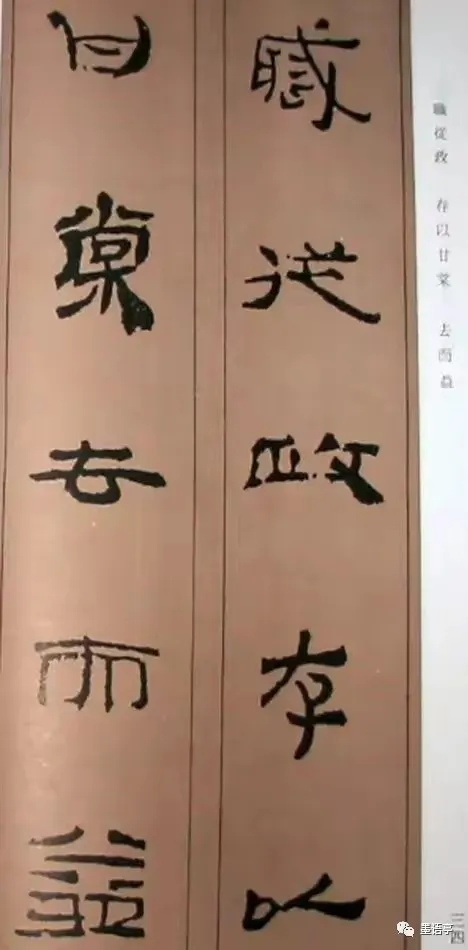 職從政存以
甘棠去而益
職從政 存以甘棠 去而益
三四
墨语亭